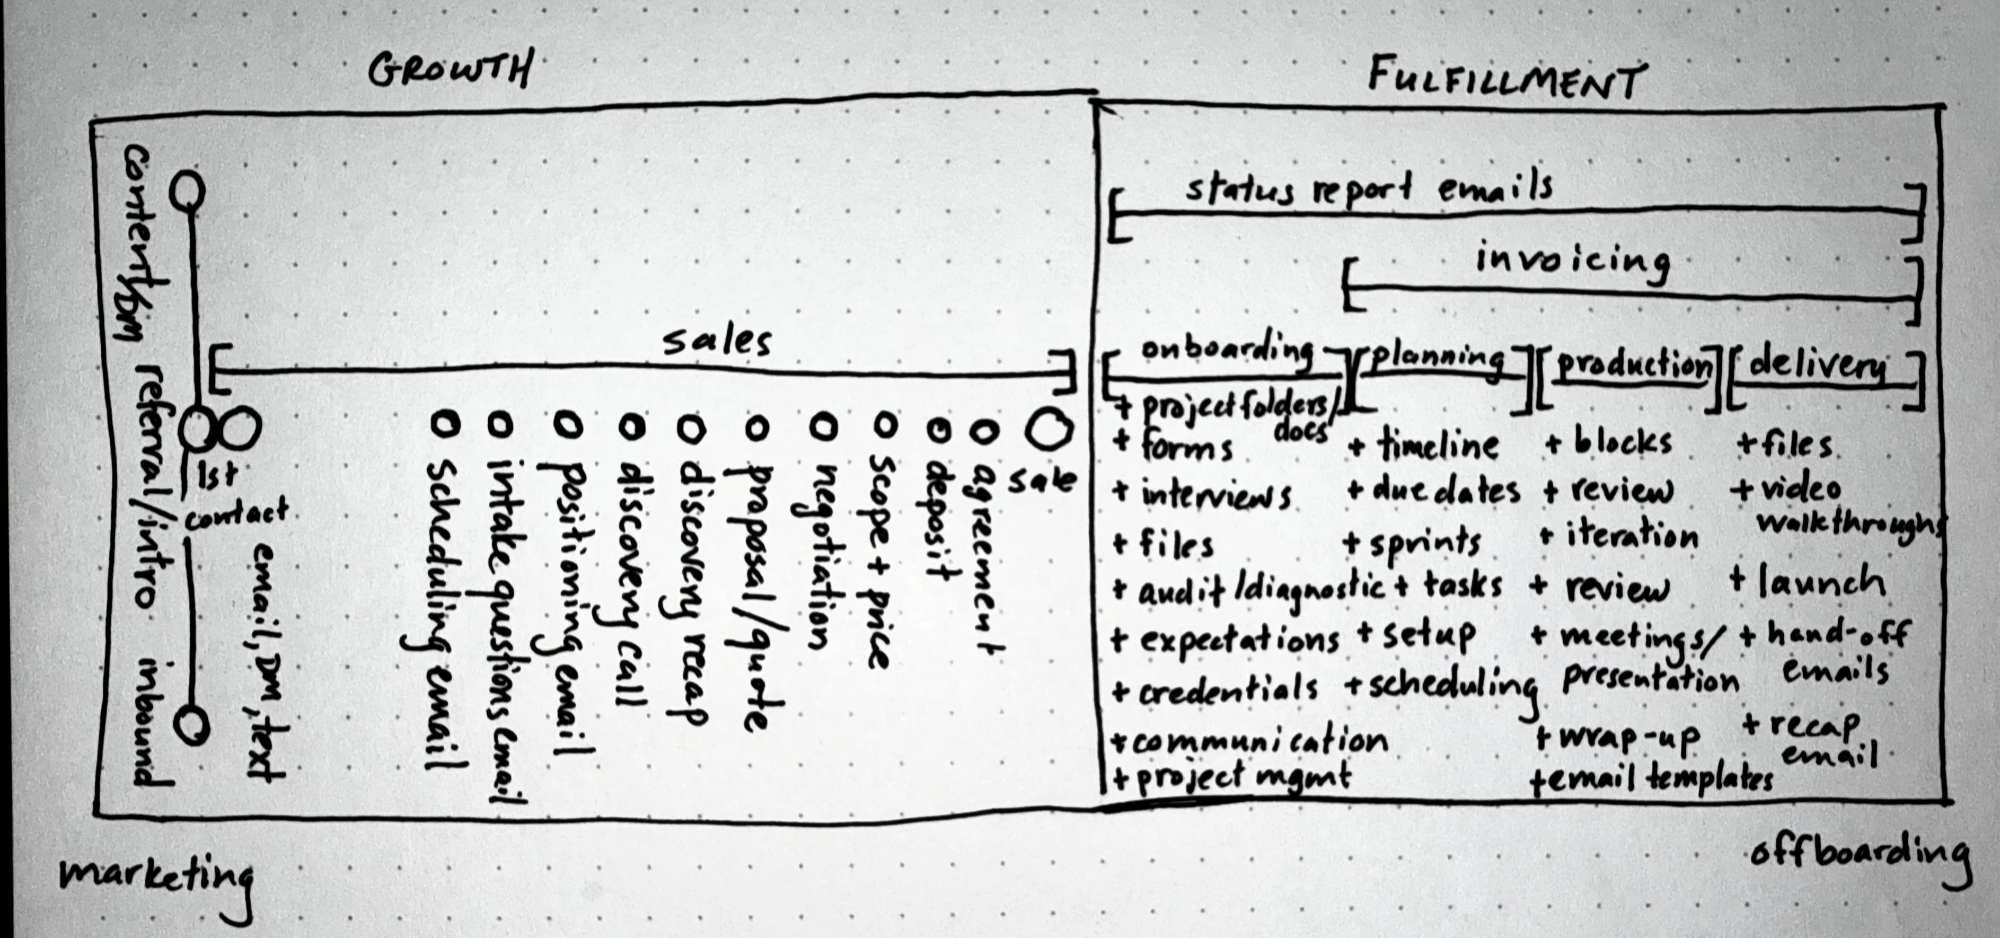 GROWTH
FULFILLMENT
content/DM
referral/intro
inbound
1st
contact
email, DM, text
sales
scheduling email
intake questions email
positioning email
discovery call
discovery recap
proposal/quote
negotiation
scope + price
deposit
agreement
sale
status report emails
invoicing
onboarding
+ project folders/
docs
+ forms
+ interviews
+ files
+ audit/diagnostic
+ expectations
+ credentials
+ communication
+ project mgmt
planning
+ timeline
+ due dates
+ sprints
+ tasks
+ setup
+ scheduling
production
+ blocks
+ review
+ iteration
+ review
+ meetings/
presentation
+ wrap-up
+ email templates
delivery
+ files
+ video
walkthroughs
+ launch
+ hand-off
emails
+ recap
email
marketing
offboarding